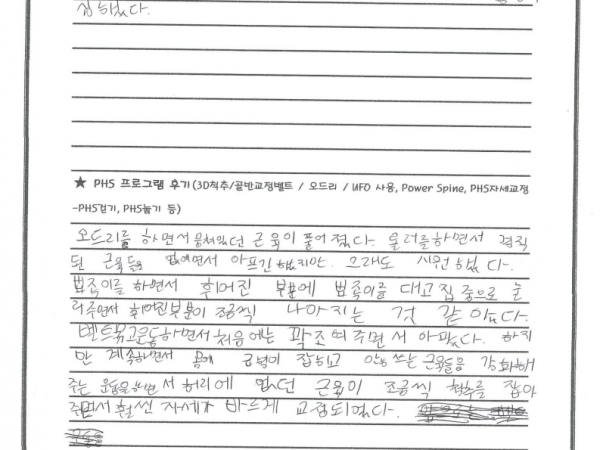 심했다.
★ PHS 프로그램 후기(3D척추/골반교정벨트 / 오드리 / UFO 사용, Power Spine, PHS자세교정
-PHS걷기, PHS눕기 등)
오드리를 하면서 뭉쳐있던 근육이 풀어졌다. 울러를하면서 경직
된 근육들을 없애면서 아프긴했지만. 그래도 시원했다.
법족이를 하면서 휘어진 부분에 법족이를 대고 집중으로 눌
러주면서 휘어진부분이 조금씩 나아지는 것 같았다.
벨트묶고운동하면서 처음에는 꽉 조여주면서 아팠다. 하지
만 계속하면서 몸에 균형이 잡히고 안쓰는 근육들을 강화해
주는 운동을하면서 허리에 없던 근육이 조금씩 척추를 잡아
주면서 훨씬 자세가 바르게 교정되었다.